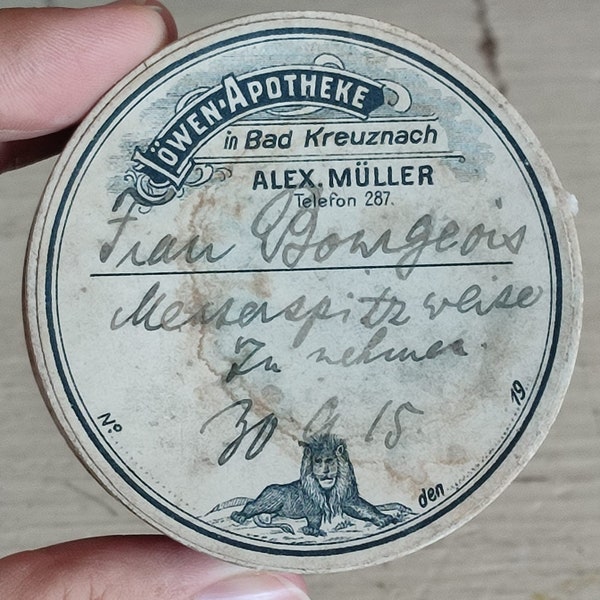 LÖWEN-APOTHEKE
in Bad Kreuznach
ALEX. MÜLLER
Telefon 287.
Frau Bourgeois
Messerspitzweise
zu nehmen.
30 9 15.
No
den
19